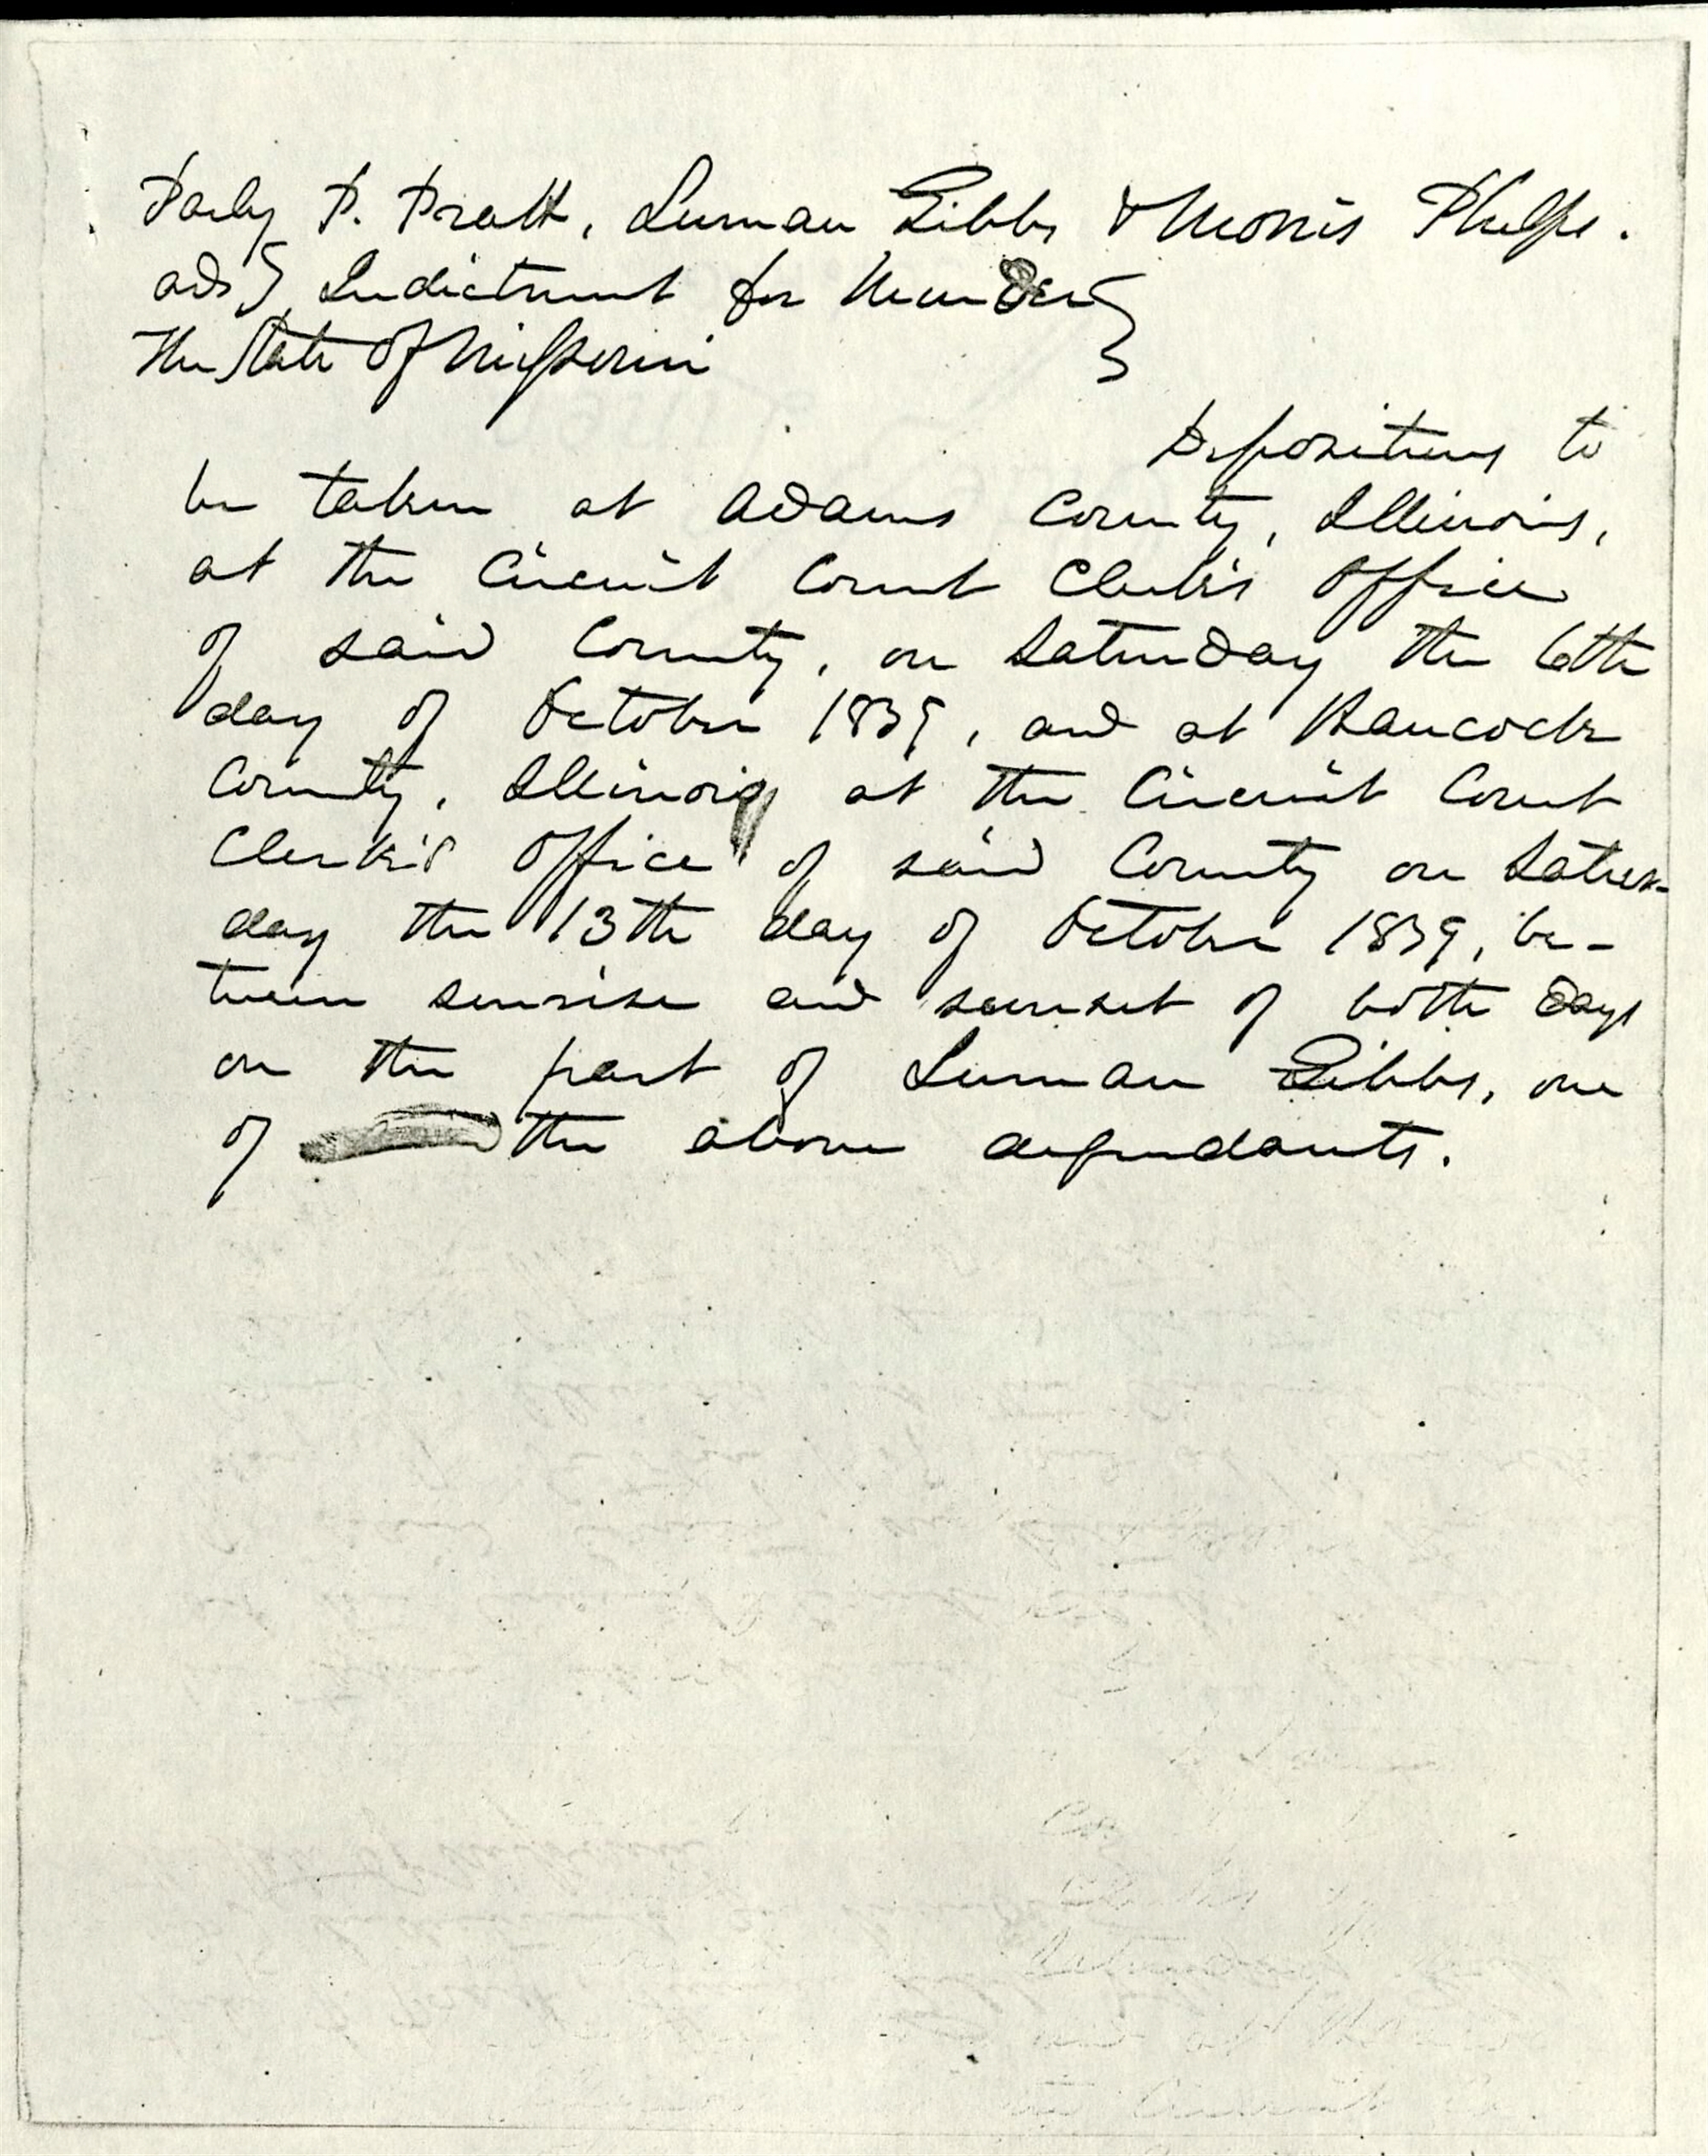 Parly P. Pratt, Luman Gibbs & Morris Phelps.
ads } Indictment for Murder }
The State of Missouri
Depositions to
be taken at Adams County, Illinois,
at the Circuit Court Clerk's Office
of said County, on Saturday the 6th
day of October 1839, and at Hancock
County, Illinois at the Circuit Court
Clerk's Office of said County on Satur-
day the 13th day of October 1839, be-
tween sunrise and sunset of both days
on the part of Luman Gibbs, one
of the above defendants.